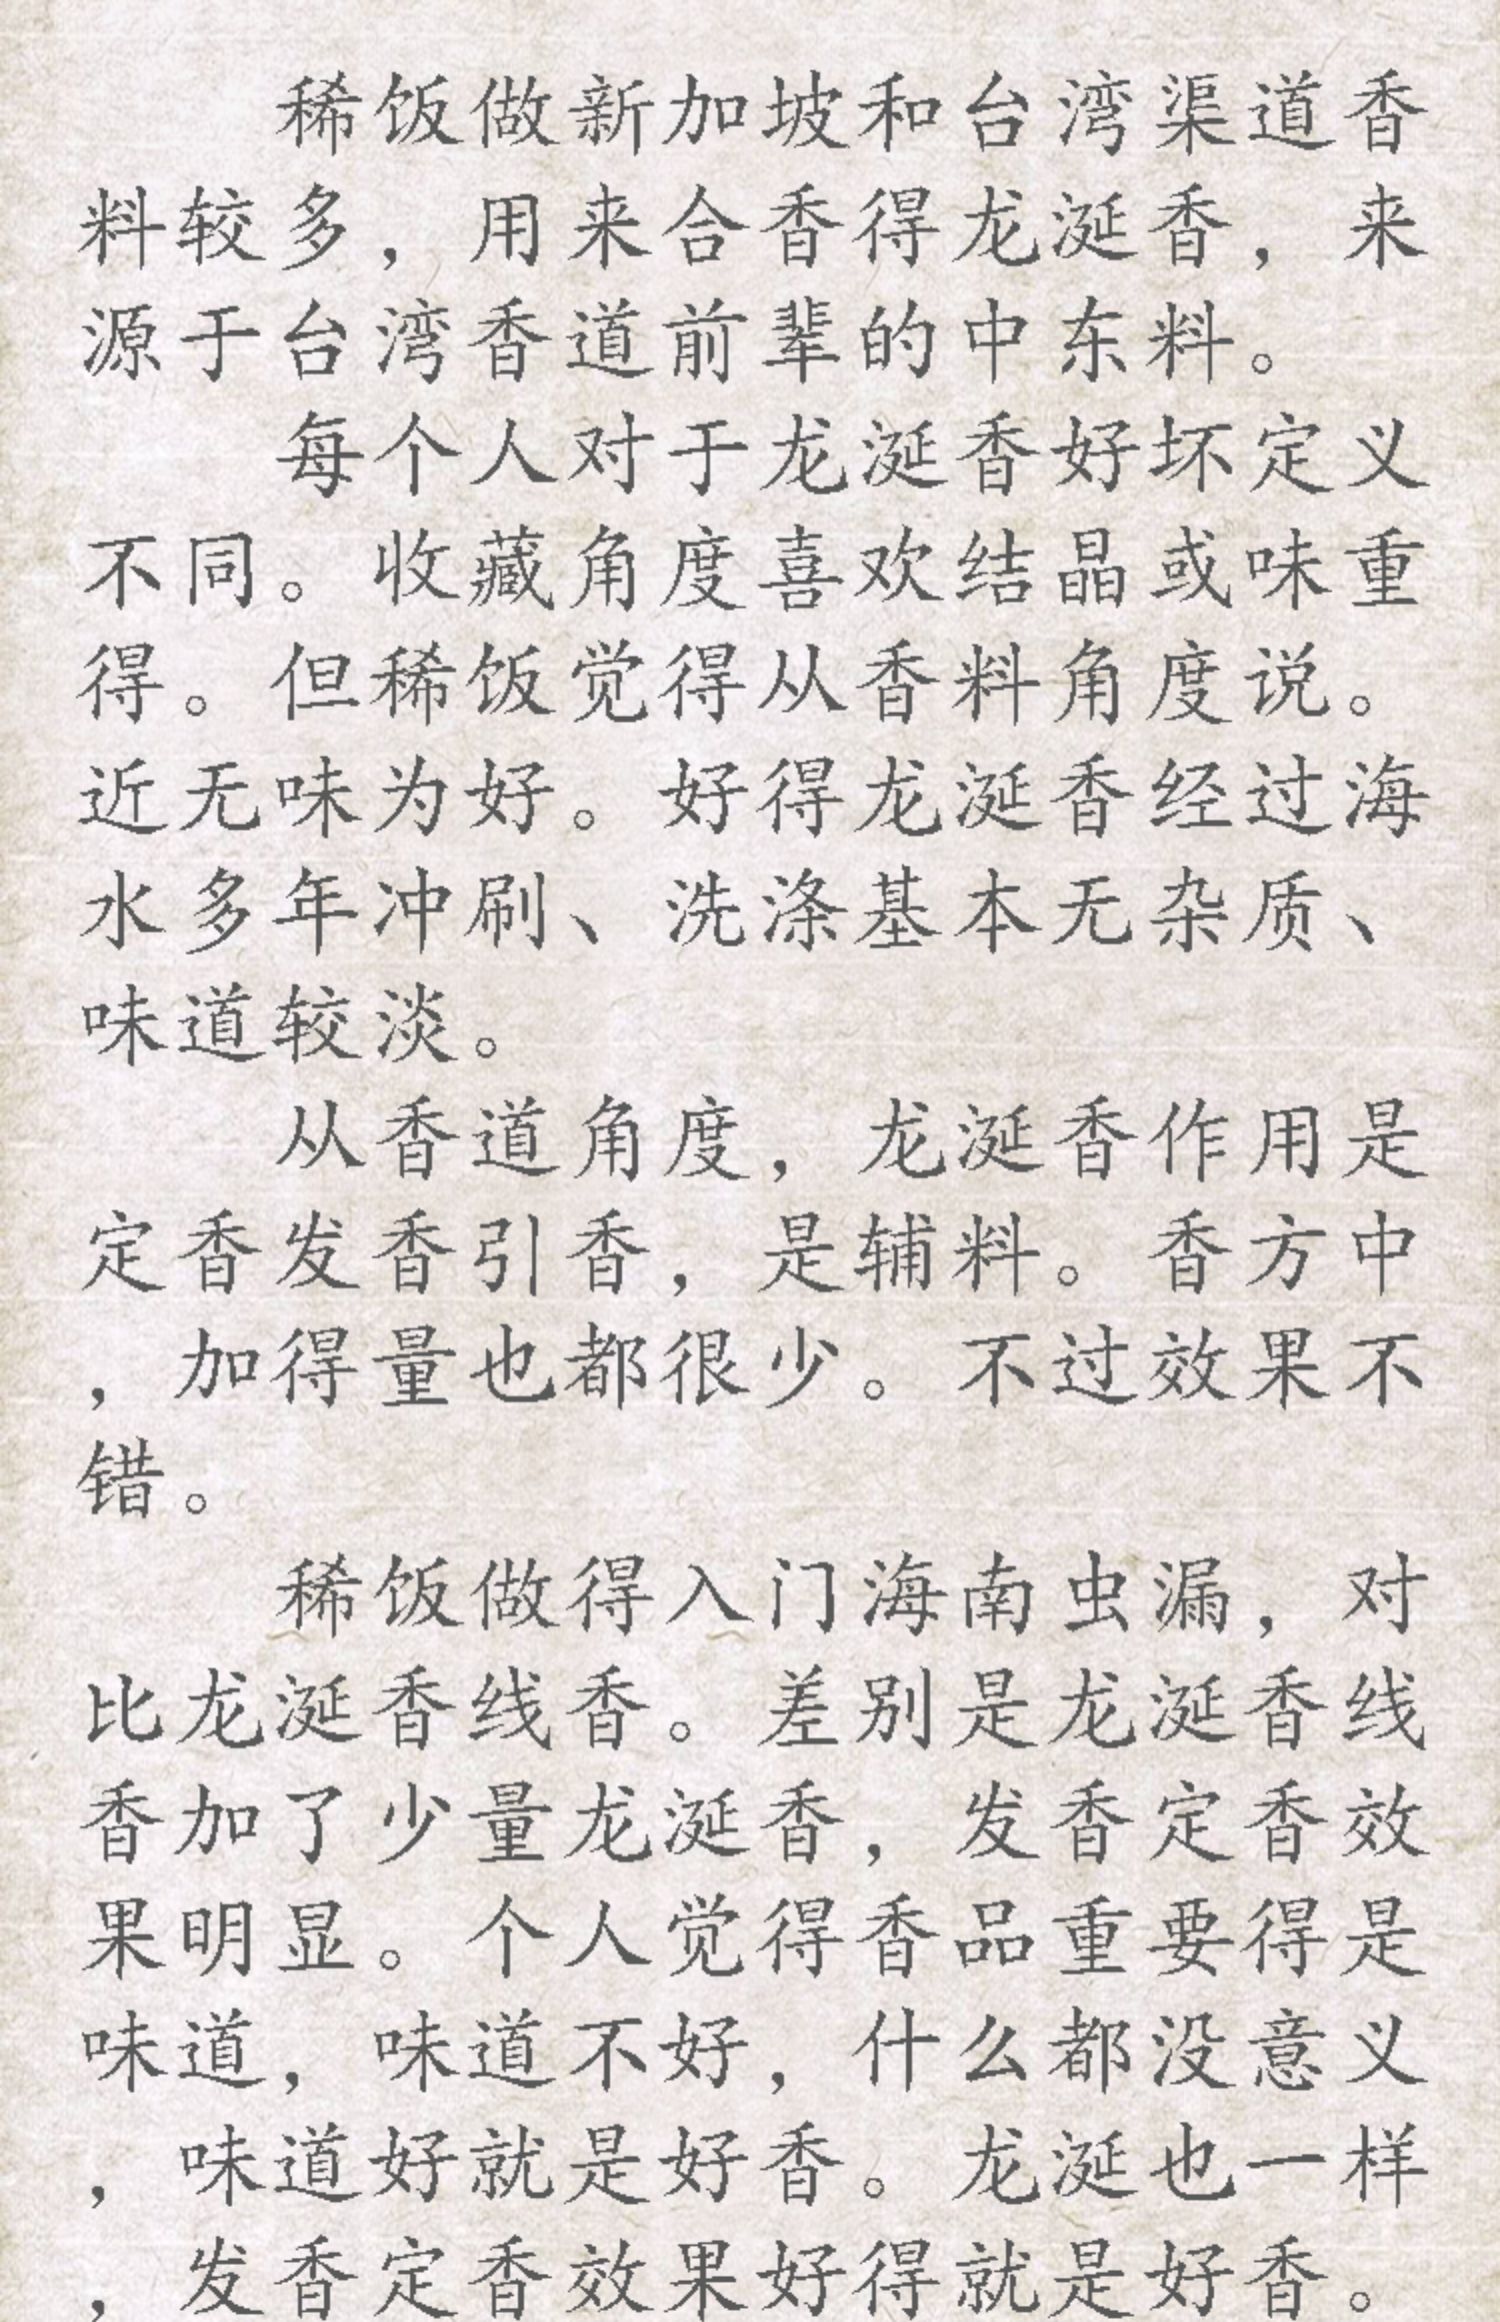 稀饭做新加坡和台湾渠道香
料较多，用来合香得龙涎香，来
源于台湾香道前辈的中东料。
每个人对于龙涎香好坏定义
不同。收藏角度喜欢结晶或味重
得。但稀饭觉得从香料角度说。
近无味为好。好得龙涎香经过海
水多年冲刷、洗涤基本无杂质、
味道较淡。
从香道角度，龙涎香作用是
定香发香引香，是辅料。香方中
，加得量也都很少。不过效果不
错。
稀饭做得入门海南虫漏，对
比龙涎香线香。差别是龙涎香线
香加了少量龙涎香，发香定香效
果明显。个人觉得香品重要得是
味道，味道不好，什么都没意义
，味道好就是好香。龙涎也一样
，发香定香效果好得就是好香。